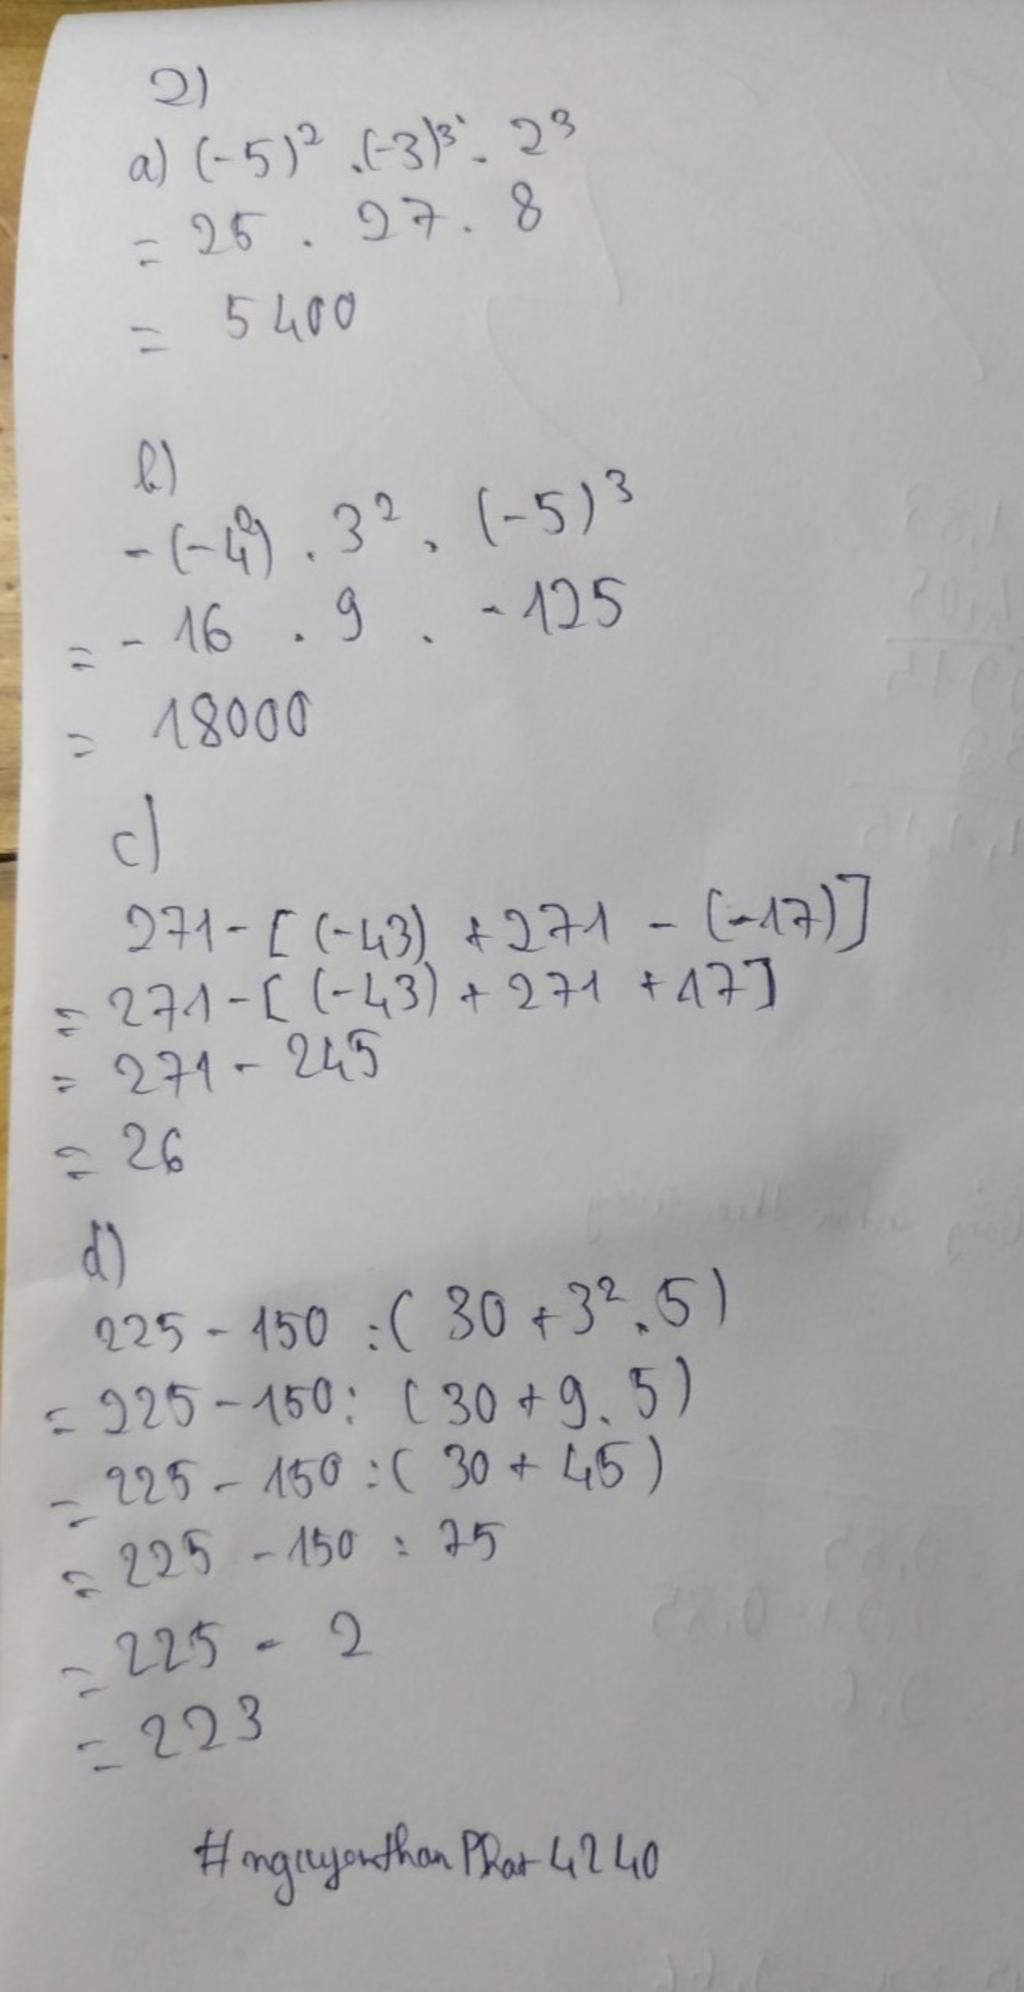 2)
a) (-5)² . (-3)³ . 2³
= 25 . 27 . 8
= 5400
b)
- (-4²) . 3² . (-5)³
= - 16 . 9 . - 125
= 18000
c)
271 - [ (-43) + 271 - (-17)]
= 271 - [ (-43) + 271 + 17]
= 271 - 245
= 26
d)
225 - 150 : ( 30 + 3² . 5)
= 225 - 150 : ( 30 + 9 . 5)
= 225 - 150 : ( 30 + 45 )
= 225 - 150 : 75
= 225 - 2
= 223
#nguyenthanPhat4240